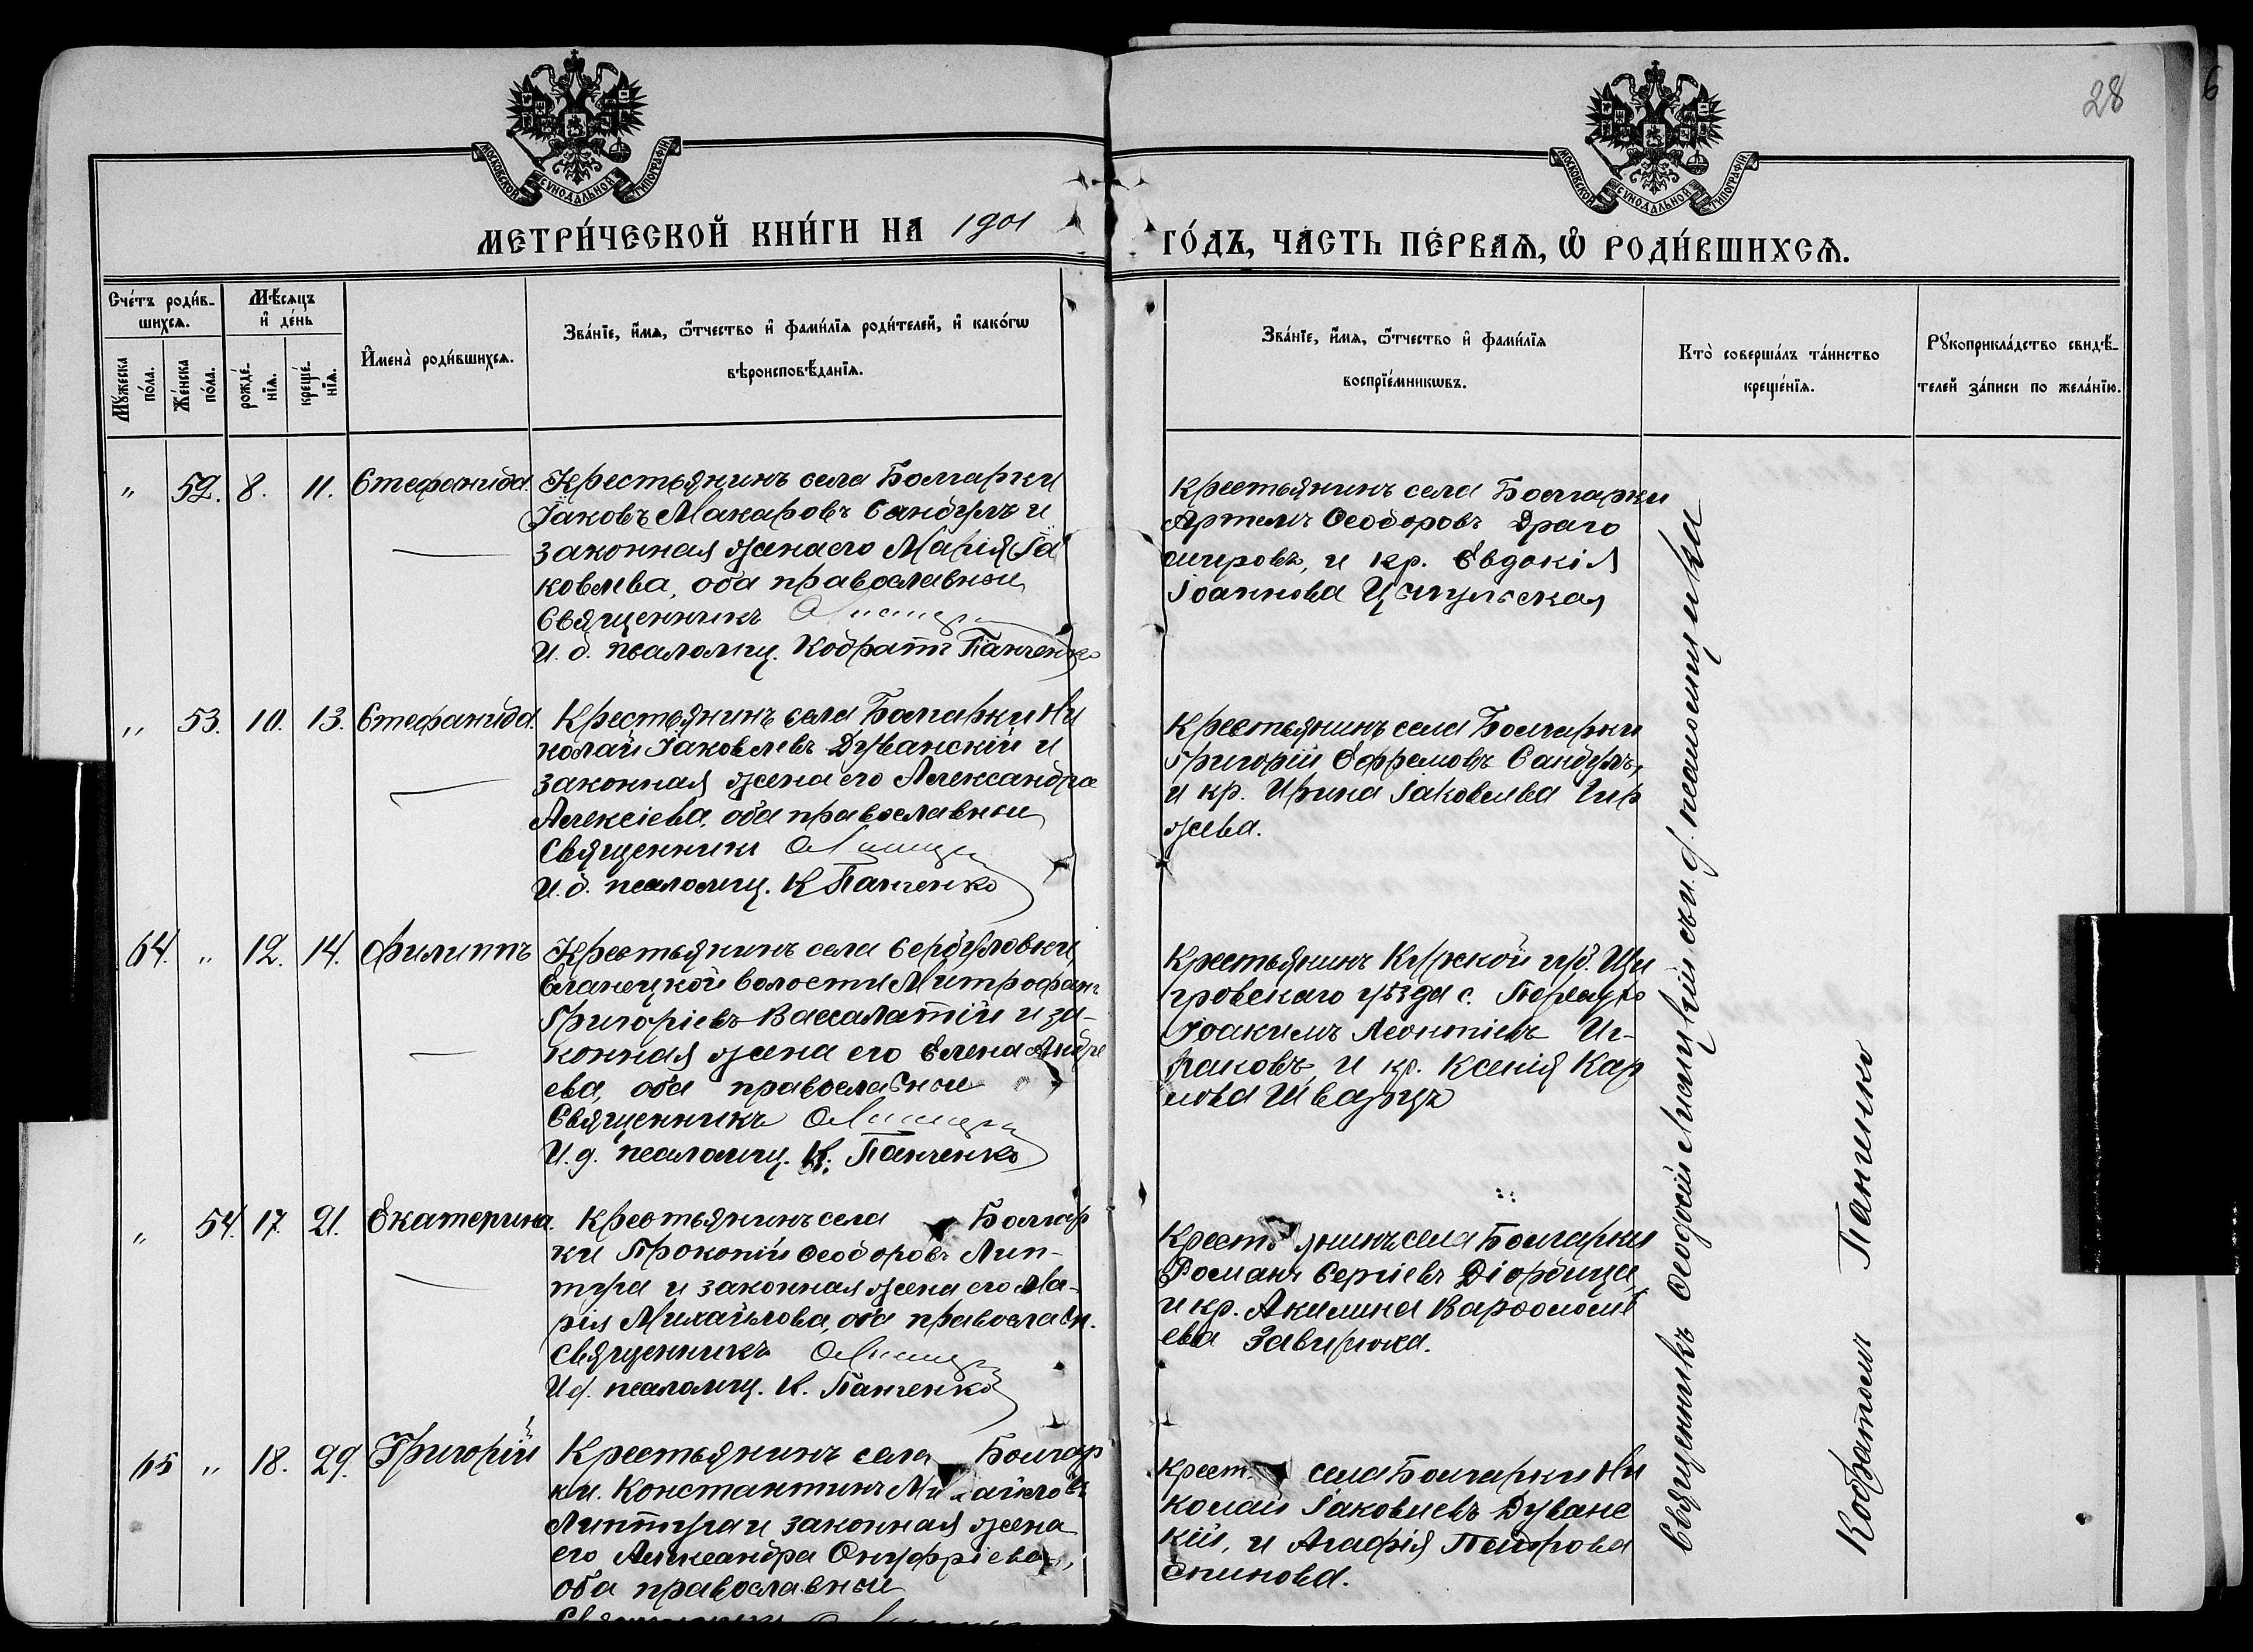 28
6
МОСКОВСКОЙ СѴНОДАЛЬНОЙ ТИПОГРАФІИ
МОСКОВСКОЙ СѴНОДАЛЬНОЙ ТИПОГРАФІИ
МЕТРИ́ЧЕСКОЙ КНИ́ГИ НА 1901
ГО́ДЪ, ЧА́СТЬ ПЕ́РВАѦ, Ѡ҆ РОДИ́ВШИХСѦ.
Сче́тъ роди́в-
шихсѧ.
Мꙋ́жеска по́ла.
Же́нска по́ла.
Мѣ́сѧцъ
и҆ де́нь
рожде́-
нїѧ.
креще́-
нїѧ.
И҆мена̀ роди́вшихсѧ.
Зва́нїе, и҆́мѧ, ѻ҆́тчество и҆ фамі́лїѧ роди́телей, и҆ како́гѡ
вѣроисповѣ́данїѧ.
Зва́нїе, и҆́мѧ, ѻ҆́тчество и҆ фамі́лїѧ
воспрїе́мникѡвъ.
Кто̀ соверша́лъ та́инство
креще́нїѧ.
Рꙋкоприкла́дство свидѣ́-
телей за́писи по жела́нїю.
" 52. 8. 11. Стефанида.
Крестьянинъ села Болгарки
Іаковъ Макаровъ Сандулъ и
законная жена его Марія Іа
ковлева, оба православные
Священникъ
И. д. псаломщ. Кодратъ Панченко
Крестьянинъ села Болгарки
Артемъ Ѳеодоровъ Драго
мировъ, и кр. Евдокія
Іоаннова
" 53. 10. 13. Стефанида.
Крестьянинъ села Болгарки Ни
колай Іаковлевъ Дуванскій и
законная жена его Александра
Алексіева, оба православные
Священникъ
И. д. псаломщ. К Панченко
Крестьянинъ села Болгарки
Григорій Ефремовъ Сандулъ,
и кр. Ирина Іаковлева Гир
жева.
64. " 12. 14. Филиппъ
Крестьянинъ села Сербуловки,
Еланецкой волости Митрофанъ
Григоріевъ Вассалатій и за-
конная жена его Елена Андре
ева, оба православные
Священникъ
И. д. псаломщ. К. Панченко
Крестьянинъ Курской губ. Щи
гровскаго уѣзда с.
Іоакимъ Леонтіевъ Ис-
каковъ и кр. Ксенія Кар
лова Шварцъ
" 54. 17. 21. Екатерина.
Крестьянинъ села Болгар
ки Прокопій Ѳеодоровъ Лип-
туга и законная жена его Ма-
рія Михайлова, оба православн.
Священникъ
И д. псаломщ. К. Панченко
Крестьянинъ села Болгарки
Романъ Сергіевъ Діордица,
и кр. Акилина Варѳоломѣ
ева Завирюха.
65 " 18. 29. Григорій
Крестьянинъ села Болгар
ки. Константинъ Михайловъ
Липтуга и законная жена
его Александра Онуфріева,
оба православные
Священникъ
Крест. села Болгарки Ни
колай Іаковлевъ Дуванс
кій, и Агафія Петрова
Священникъ Ѳеодосій Лисицкій съ и. д. псаломщика
Кодратомъ Панченко